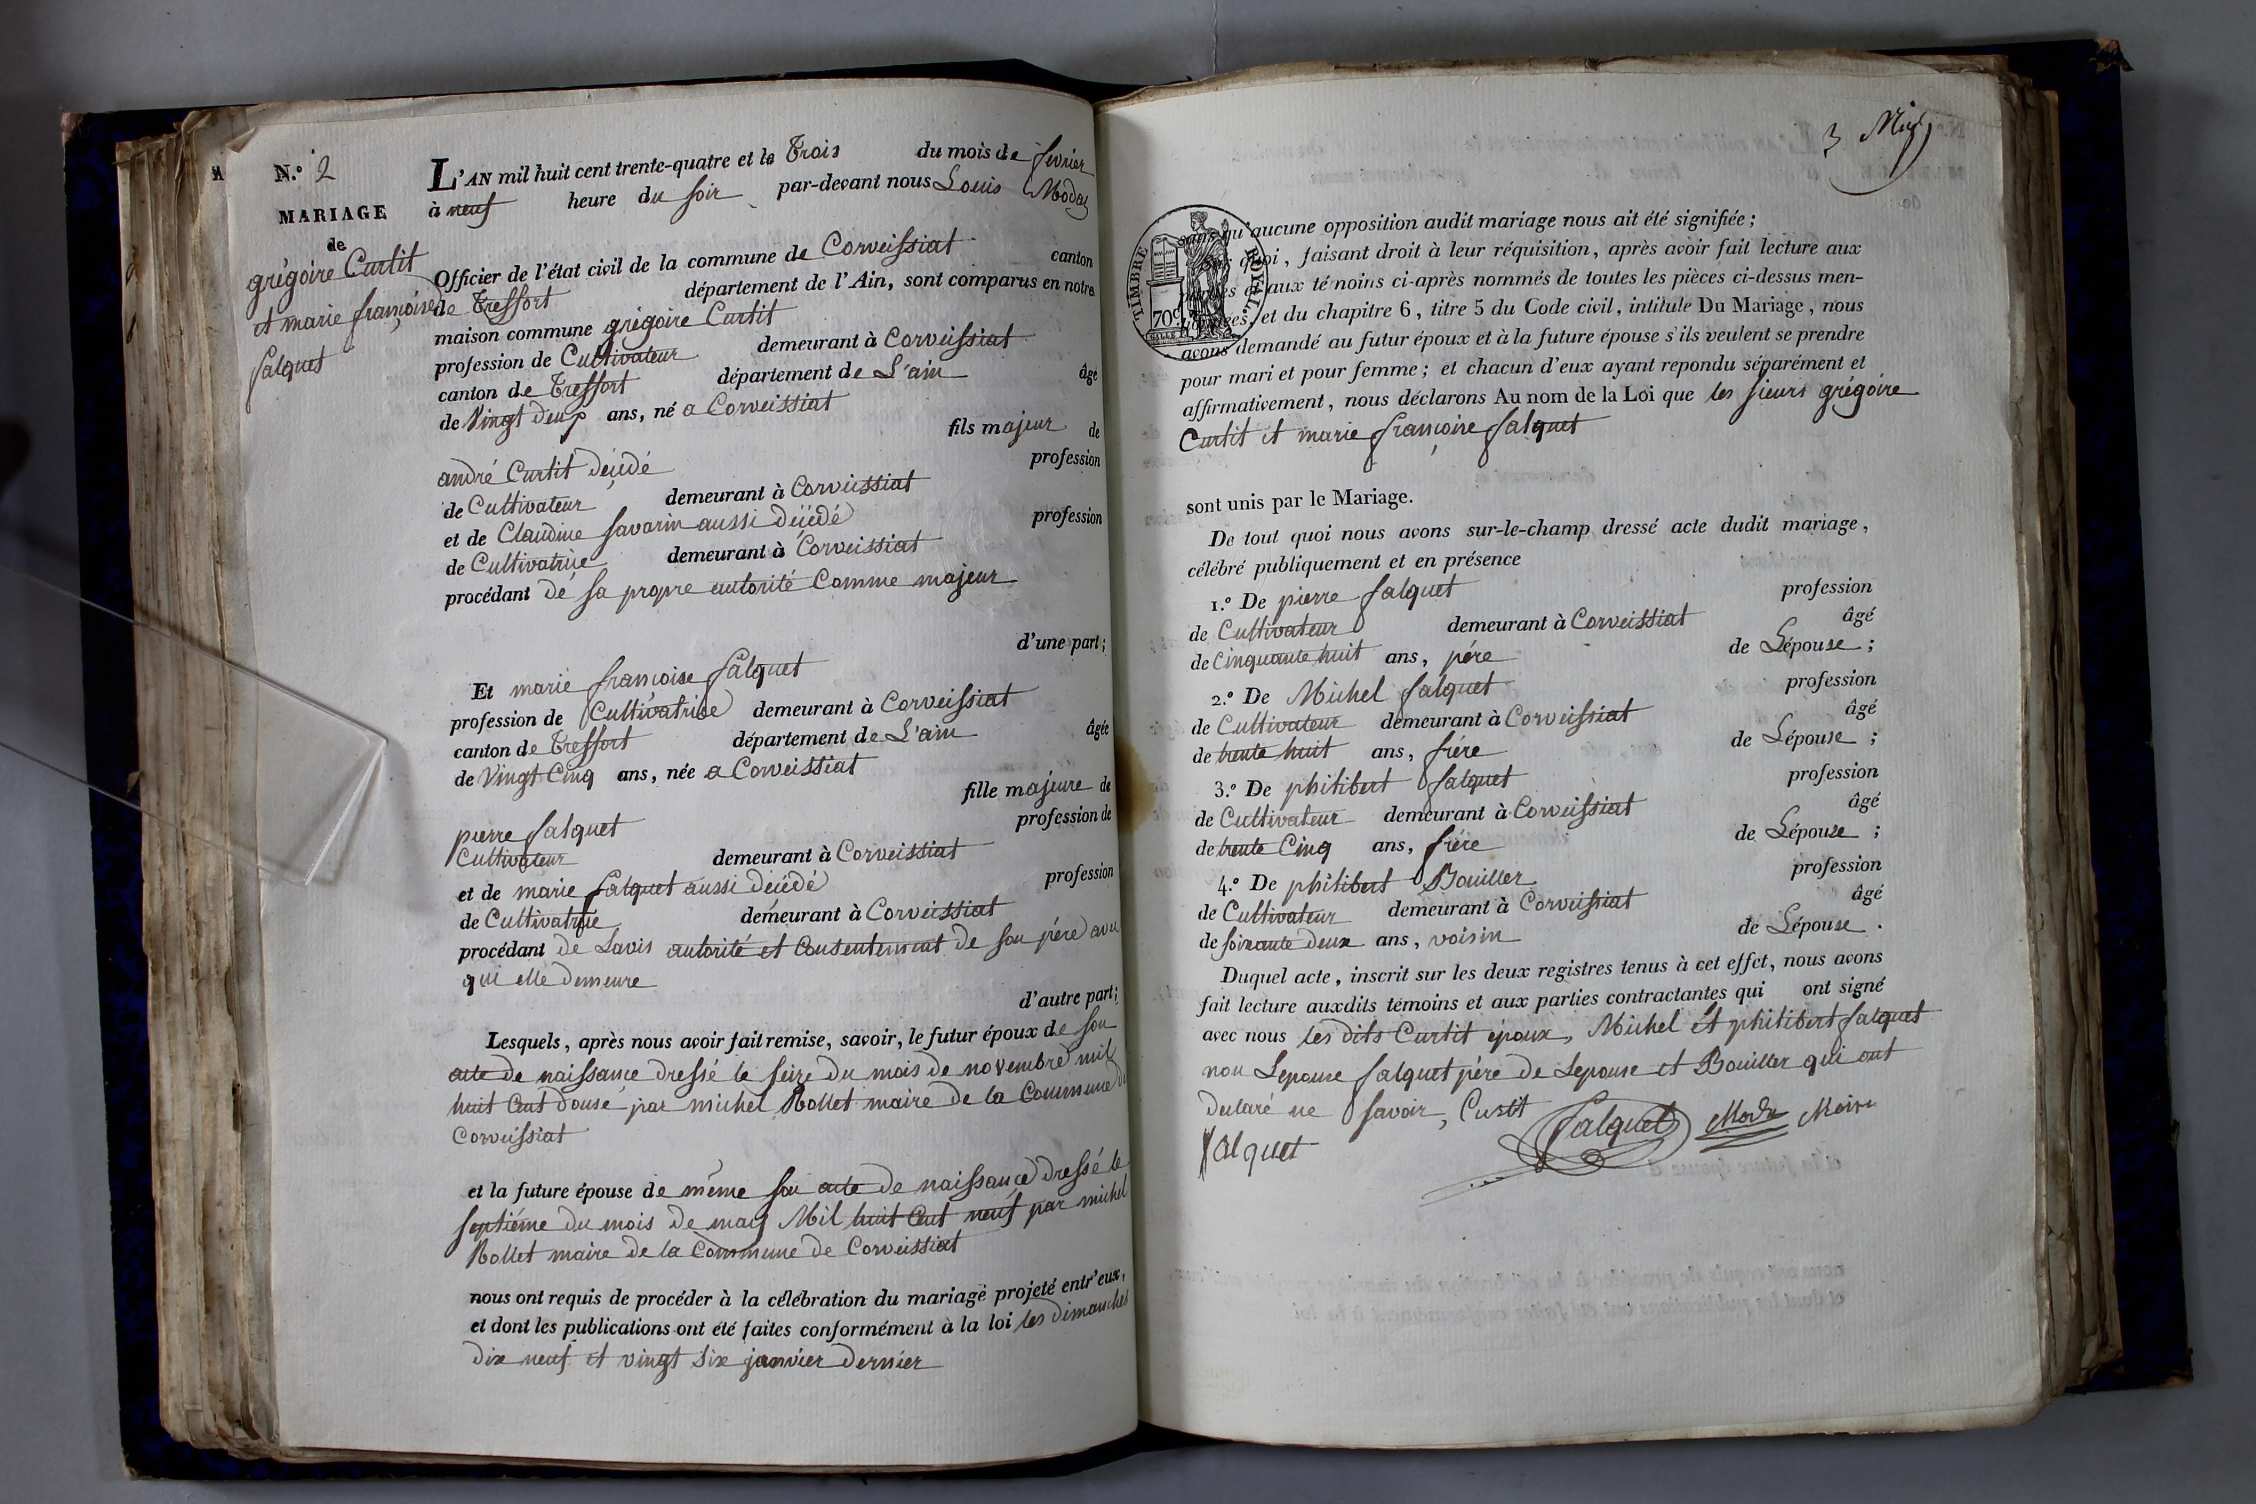 N.º 2
MARIAGE
de
grégoire Curtit
et marie françoise
falquet
L'AN mil huit cent trente-quatre et le Trois du mois de fevrier
à neuf heure du soir par-devant nous Louis Moda
Officier de l'état civil de la commune de Corveissiat canton
de Treffort département de l'Ain, sont comparus en notre
maison commune grégoire Curtit
profession de Cultivateur demeurant à Corveissiat
canton de Treffort département de L'ain âgé
de Vingt deux ans, né a Corveissiat
fils majeur de
andré Curtit décédé profession
de Cultivateur demeurant à Corveissiat
et de Claudine savarin aussi décédé profession
de Cultivatrice demeurant à Corveissiat
procédant de sa propre autorité Comme majeur
d'une part;
Et marie francoise falquet
profession de Cultivatrice demeurant à Corveissiat
canton de Treffort département de L'ain âgée
de Vingt Cinq ans, née a Corveissiat
fille majeure de
pierre falquet profession de
Cultivateur demeurant à Corveissiat
et de marie falquet aussi décédé profession
de Cultivatrice demeurant à Corveissiat
procédant de Lavis autorité et Consentement de son pére avec
qui elle demeure
d'autre part;
Lesquels, après nous avoir fait remise, savoir, le futur époux de son
acte de naissance dressé le seize du mois de novembre mil
huit Cent douse par michel Rollet maire de la Commune de
Corveissiat
et la future épouse de même son acte de naissance dressé le
septiéme du mois de mars Mil huit Cent neuf par michel
Rollet maire de la Commune de Corveissiat
nous ont requis de procéder à la célébration du mariage projeté entr'eux,
et dont les publications ont été faites conformément à la loi les dimanches
dix neuf et vingt six janvier dernier
3
TIMBRE ROYAL
70c
sans qu'aucune opposition audit mariage nous ait été signifiée;
Sur quoi, faisant droit à leur réquisition, après avoir fait lecture aux
parties et aux témoins ci-après nommés de toutes les pièces ci-dessus men-
tionnées, et du chapitre 6, titre 5 du Code civil, intitule Du Mariage, nous
avons demandé au futur époux et à la future épouse s'ils veulent se prendre
pour mari et pour femme; et chacun d'eux ayant repondu séparément et
affirmativement, nous déclarons Au nom de la Loi que les sieurs grégoire
Curtit et marie françoise falquet
sont unis par le Mariage.
De tout quoi nous avons sur-le-champ dressé acte dudit mariage,
célébré publiquement et en présence
1.º De pierre falquet profession
de Cultivateur demeurant à Corveissiat âgé
de Cinquante huit ans, pére de Lépouse;
2.º De Michel falquet profession
de Cultivateur demeurant à Corveissiat âgé
de trente huit ans, frére de Lépouse;
3.º De philibert falquet profession
de Cultivateur demeurant à Corveissiat âgé
de trente Cinq ans, frére de Lépouse;
4.º De philibert Bouiller profession
de Cultivateur demeurant à Corveissiat âgé
de soixante deux ans, voisin de Lépouse.
Duquel acte, inscrit sur les deux registres tenus à cet effet, nous avons
fait lecture auxdits témoins et aux parties contractantes qui ont signé
avec nous les dits Curtit époux, Michel et philibert falquet
non Lepouse falquet pére de Lepouse et Bouiller qui ont
declaré ne savoir, Curtit
falquet falquet Moda Maire